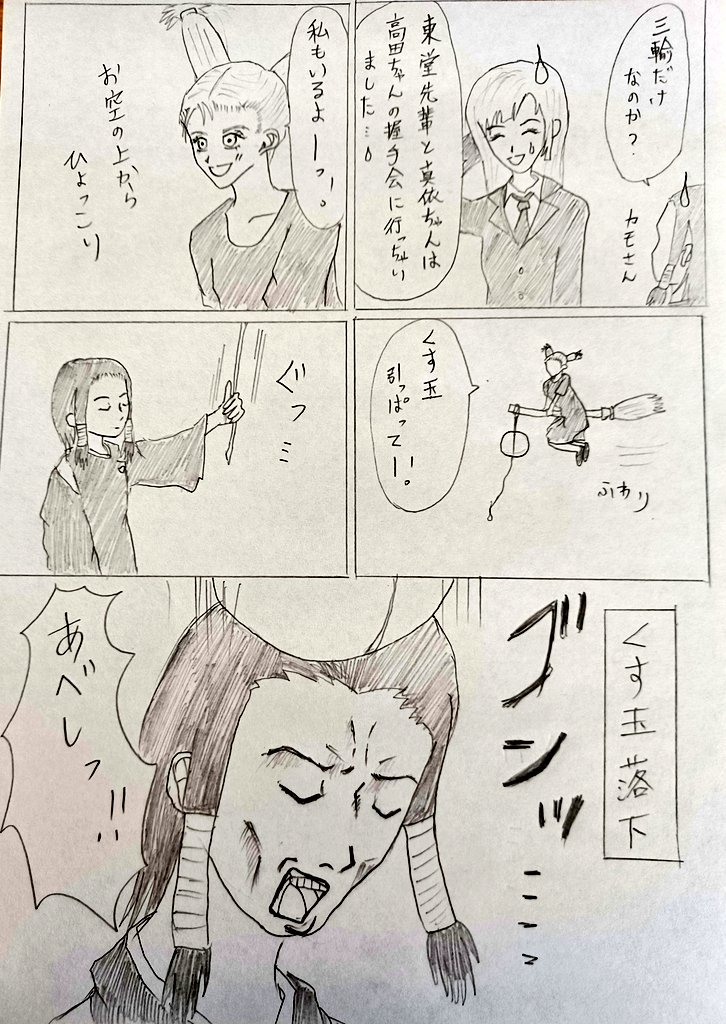 三輪だけ
なのか？
カモさん
東堂先輩と真依ちゃんは
高田ちゃんの握手会に行っちゃい
ました…
私もいるよーっ。
お空の上から
ひょっこり
くす玉
引っぱってー！
ふわり
ぐっ…
くす玉落下
ゴンッ
あべしっ!!